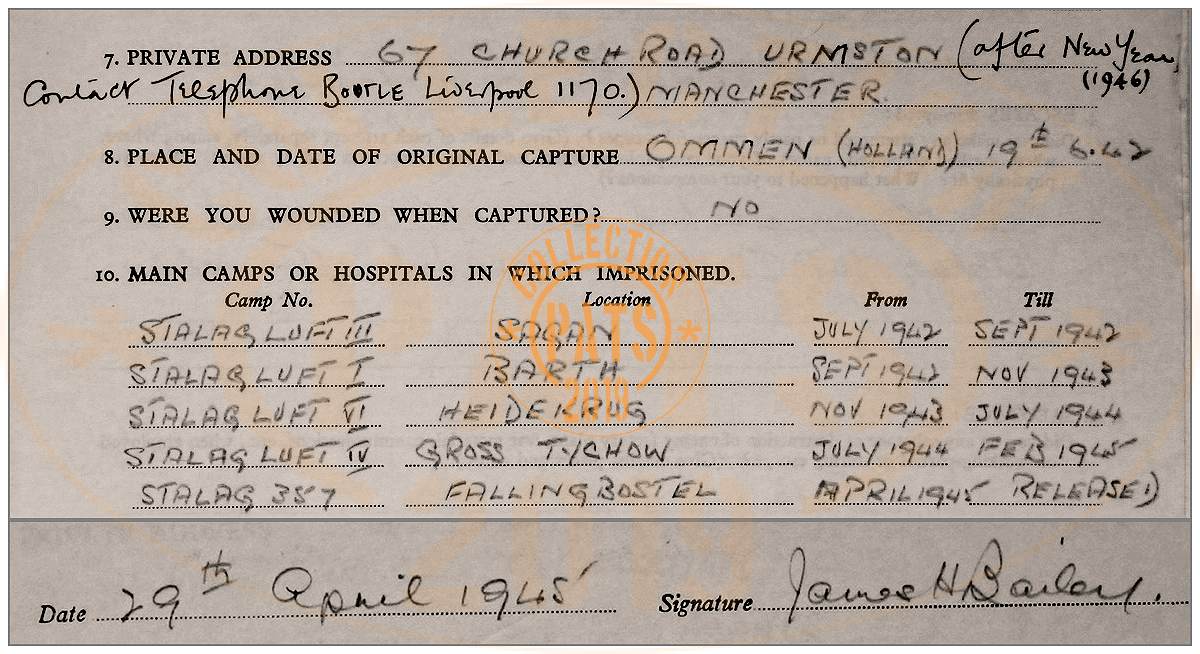 7. PRIVATE ADDRESS 67 CHURCH ROAD URMSTON (after New Year
(1946)
Contact Telephone BOOTLE Liverpool 1170.) MANCHESTER.
8. PLACE AND DATE OF ORIGINAL CAPTURE OMMEN (HOLLAND) 19th 6.42
9. WERE YOU WOUNDED WHEN CAPTURED? NO
10. MAIN CAMPS OR HOSPITALS IN WHICH IMPRISONED.
Camp No. Location From Till
STALAG LUFT III SAGAN JULY 1942 SEPT 1942
STALAG LUFT I BARTH SEPT 1942 NOV 1943
STALAG LUFT VI HEIDEKRUG NOV 1943 JULY 1944
STALAG LUFT IV GROSS TYCHOW JULY 1944 FEB 1945
STALAG 357 FALLINGBOSTEL APRIL 1945 RELEASED
COLLECTION
PATS *
2019
Date 29th April 1945 Signature James H Bailey.